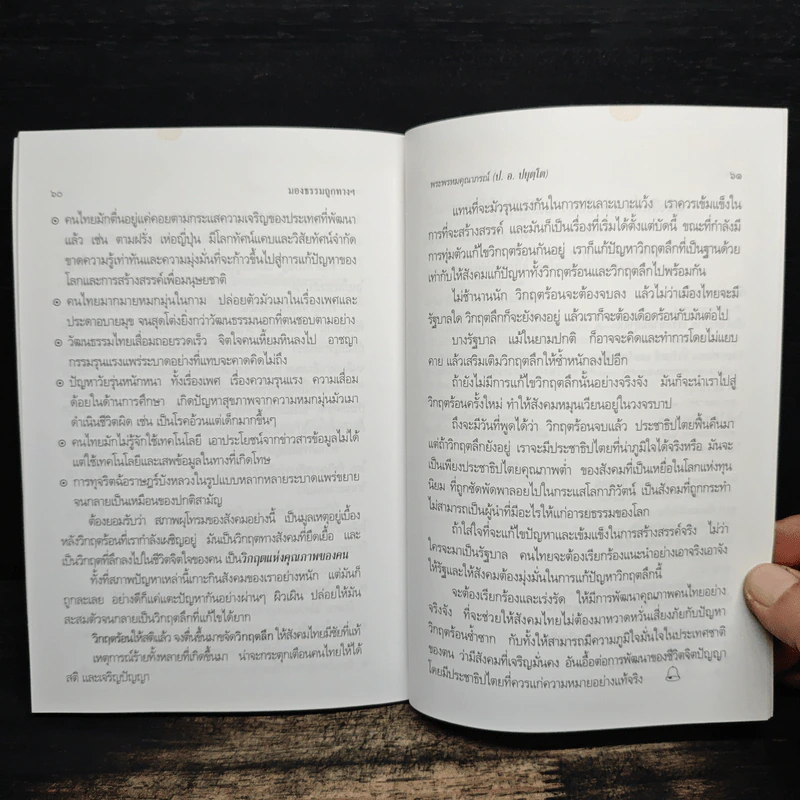 ๖๐ มองธรรมถูกทางฯ
คนไทยมักตื่นอยู่แค่คอยตามกระแสความเจริญของประเทศที่พัฒนา
แล้ว เช่น ตามฝรั่ง เห่อญี่ปุ่น มีโลกทัศน์แคบและวิสัยทัศน์จำกัด
ขาดความรู้เท่าทันและความมุ่งมั่นที่จะก้าวขึ้นไปสู่การแก้ปัญหาของ
โลกและการสร้างสรรค์เพื่อมนุษยชาติ
คนไทยมากมายหมกมุ่นในกาม ปล่อยตัวมัวเมาในเรื่องเพศและ
ประดาอบายมุข จนสุดโต่งยิ่งกว่าวัฒนธรรมนอกที่ตนชอบตามอย่าง
วัฒนธรรมไทยเสื่อมถอยรวดเร็ว จิตใจคนเหี้ยมหินลงไป อาชญา
กรรมรุนแรงแพร่ระบาดอย่างที่แทบจะคาดคิดไม่ถึง
ปัญหาวัยรุ่นหนักหนา ทั้งเรื่องเพศ เรื่องความรุนแรง ความเสื่อม
ด้อยในด้านการศึกษา เกิดปัญหาสุขภาพจากความหมกมุ่นมัวเมา
ดำเนินชีวิตผิด เช่น เป็นโรคอ้วนแต่เด็กมากขึ้นๆ
คนไทยมักไม่รู้จักใช้เทคโนโลยี เอาประโยชน์จากข่าวสารข้อมูลไม่ได้
แต่ใช้เทคโนโลยีและเสพข้อมูลในทางที่เกิดโทษ
การทุจริตฉ้อราษฎร์บังหลวงในรูปแบบหลากหลายระบาดแพร่ขยาย
จนกลายเป็นเหมือนของปกติสามัญ
ต้องยอมรับว่า สภาพผุโทรมของสังคมอย่างนี้ เป็นมูลเหตุอยู่เบื้อง
หลังวิกฤตร้อนที่เรากำลังเผชิญอยู่ มันเป็นวิกฤตทางสังคมที่ยืดเยื้อ และ
เป็นวิกฤตที่ลึกลงไปในชีวิตจิตใจของคน เป็นวิกฤตแห่งคุณภาพของคน
ทั้งที่สภาพปัญหาเหล่านี้เกาะกินสังคมของเราอย่างหนัก แต่มันก็
ถูกละเลย อย่างดีก็แค่แตะปัญหากันอย่างผ่านๆ ผิวเผิน ปล่อยให้มัน
สะสมตัวจนกลายเป็นวิกฤตลึกที่แก้ไขได้ยาก
วิกฤตร้อนให้สติแล้ว จงตื่นขึ้นมาขจัดวิกฤตลึก ให้สังคมไทยมีชัยที่แท้
เหตุการณ์ร้ายทั้งหลายที่เกิดขึ้นมา น่าจะกระตุกเตือนคนไทยให้ได้
สติ และเจริญปัญญา
พระพรหมคุณาภรณ์ (ป. อ. ปยุตฺโต) ๖๑
แทนที่จะมัวรุนแรงกันในการทะเลาะเบาะแว้ง เราควรเข้มแข็งใน
การที่จะสร้างสรรค์ และมันก็เป็นเรื่องที่เริ่มได้ตั้งแต่บัดนี้ ขณะที่กำลังมี
การทุ่มตัวแก้ไขวิกฤตร้อนกันอยู่ เราก็แก้ปัญหาวิกฤตลึกที่เป็นฐานด้วย
เท่ากับให้สังคมแก้ปัญหาทั้งวิกฤตร้อนและวิกฤตลึกไปพร้อมกัน
ไม่ช้านานนัก วิกฤตร้อนจะต้องจบลง แล้วไม่ว่าเมืองไทยจะมี
รัฐบาลใด วิกฤตลึกก็จะยังคงอยู่ แล้วเราก็จะต้องเดือดร้อนกับมันต่อไป
บางรัฐบาล แม้ในยามปกติ ก็อาจจะคิดและทำการโดยไม่แยบ
คาย แล้วเสริมเติมวิกฤตลึกให้ซ้ำหนักลงไปอีก
ถ้ายังไม่มีการแก้ไขวิกฤตลึกนั้นอย่างจริงจัง มันก็จะนำเราไปสู่
วิกฤตร้อนครั้งใหม่ ทำให้สังคมหมุนเวียนอยู่ในวงจรบาป
ถึงจะมีวันที่พูดได้ว่า วิกฤตร้อนจบแล้ว ประชาธิปไตยฟื้นคืนมา
แต่ถ้าวิกฤตลึกยังอยู่ เราจะมีประชาธิปไตยที่น่าภูมิใจได้จริงหรือ มันจะ
เป็นเพียงประชาธิปไตยคุณภาพต่ำ ของสังคมที่เป็นเหยื่อในโลกแห่งทุน
นิยม ที่ถูกซัดพัดพาลอยไปในกระแสโลกาภิวัตน์ เป็นสังคมที่ถูกกระทำ
ไม่สามารถเป็นผู้นำที่มีอะไรให้แก่อารยธรรมของโลก
ถ้าใส่ใจที่จะแก้ไขปัญหาและเข้มแข็งในการสร้างสรรค์จริง ไม่ว่า
ใครจะมาเป็นรัฐบาล คนไทยจะต้องเรียกร้องแนะนำอย่างเอาจริงเอาจัง
ให้รัฐและให้สังคมต้องมุ่งมั่นในการแก้ปัญหาวิกฤตลึกนี้
จะต้องเรียกร้องและเร่งรัด ให้มีการพัฒนาคุณภาพคนไทยอย่าง
จริงจัง ที่จะช่วยให้สังคมไทยไม่ต้องมาหวาดหวั่นเสี่ยงภัยกับปัญหา
วิกฤตร้อนซ้ำซาก กับทั้งให้สามารถมีความภูมิใจมั่นใจในประเทศชาติ
ของตน ว่ามีสังคมที่เจริญมั่นคง อันเอื้อต่อการพัฒนาของชีวิตจิตปัญญา
โดยมีประชาธิปไตยที่ควรแก่ความหมายอย่างแท้จริง